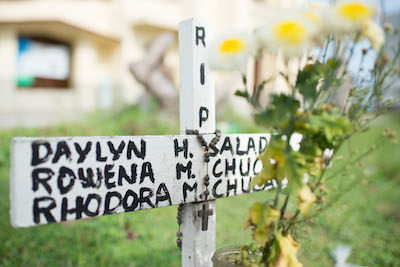 RIP
DAYLYN H. SALAD
ROWENA M. CHUC
RHODORA M. CHUCA